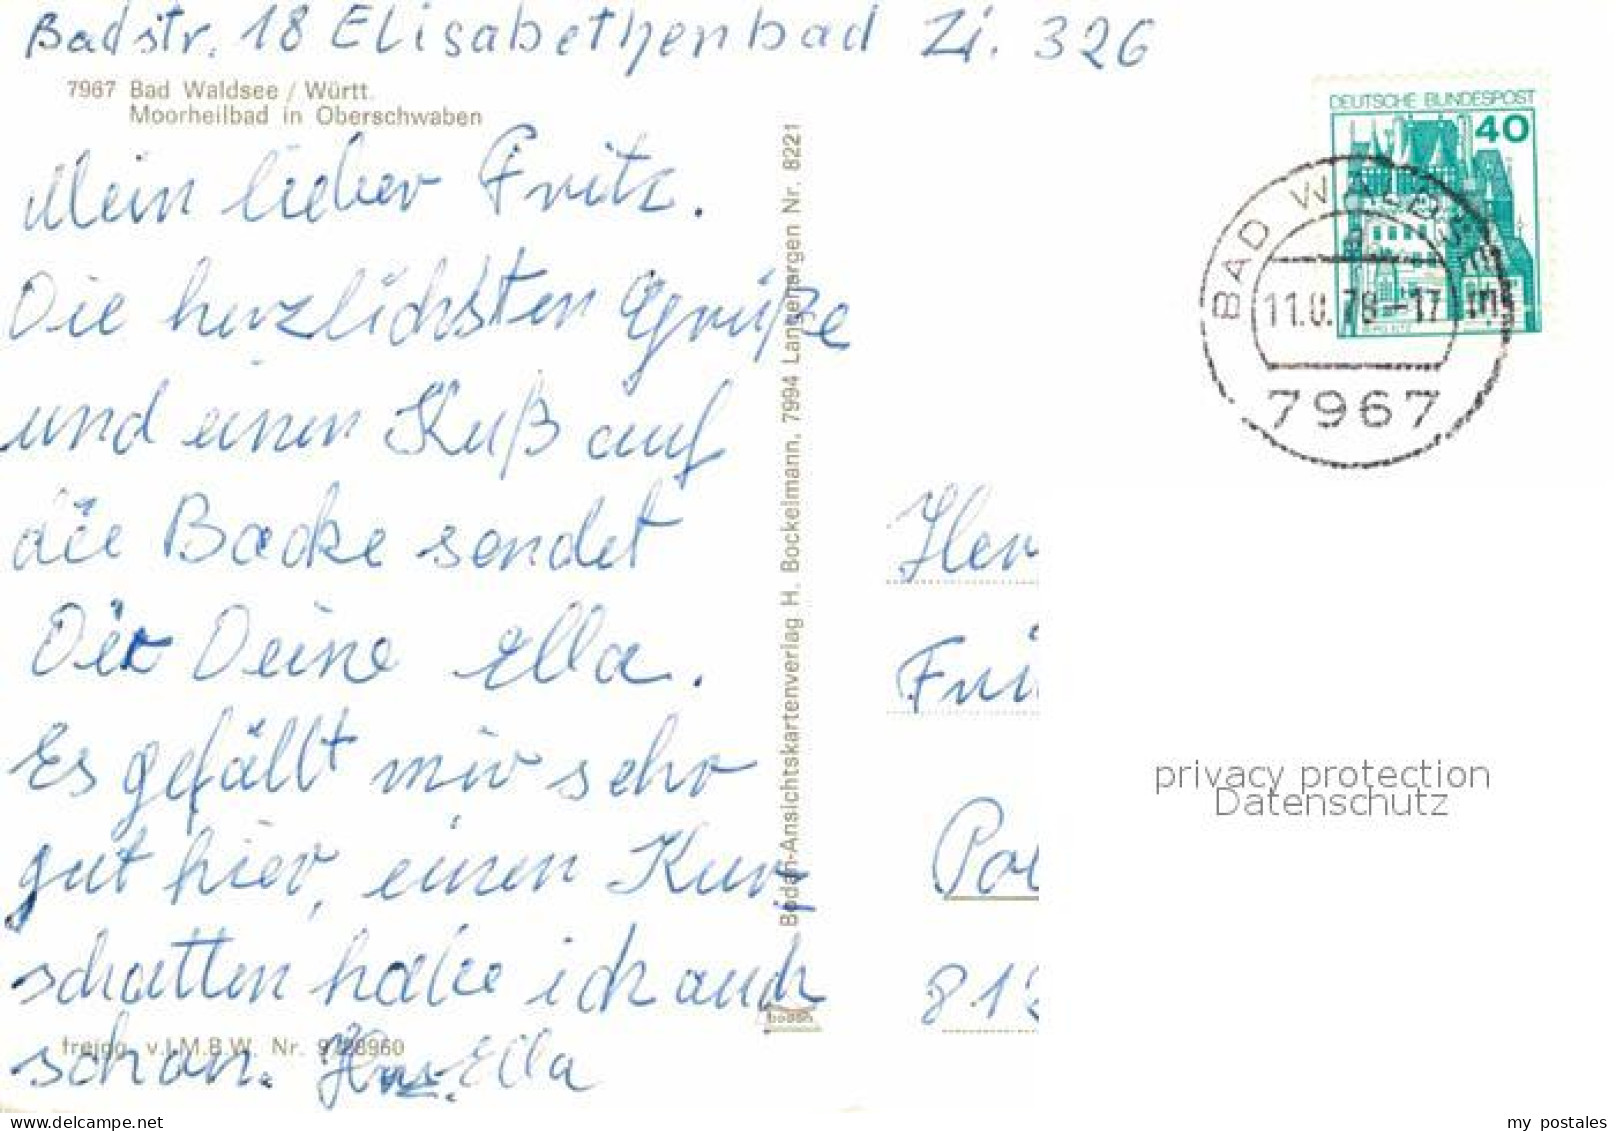 Badstr. 18 Elisabethenbad Zi. 326
7967 Bad Waldsee / Württ.
Moorheilbad in Oberschwaben
Mein lieber Fritz.
Die herzlichsten Grüße
und einen Kuß auf
die Backe sendet
Dir Deine Ella.
Es gefällt mir sehr
gut hier, einen Kur-
schatten habe ich auch
schon. Ella
freigg. v. I.M.B.W. Nr.
Bodan-Ansichtskartenverlag H. Bockelmann, 7994 Langenargen Nr. 8221
bodan
DEUTSCHE BUNDESPOST
40
BAD WALDSEE
7967
Her
Pol
81
privacy protection
Datenschutz
www.delcampe.net
my_postales